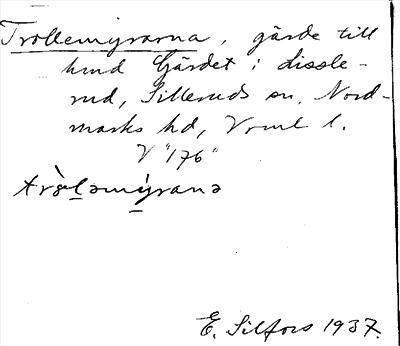 Trollemyrarna, gärde till
hmd Gärdet i Dissle-
rud, Silleruds sn, Nord-
marks hd, Vrml l.
V "176"
trȍl̲əmý̲ranə
E. Silfors 1937.